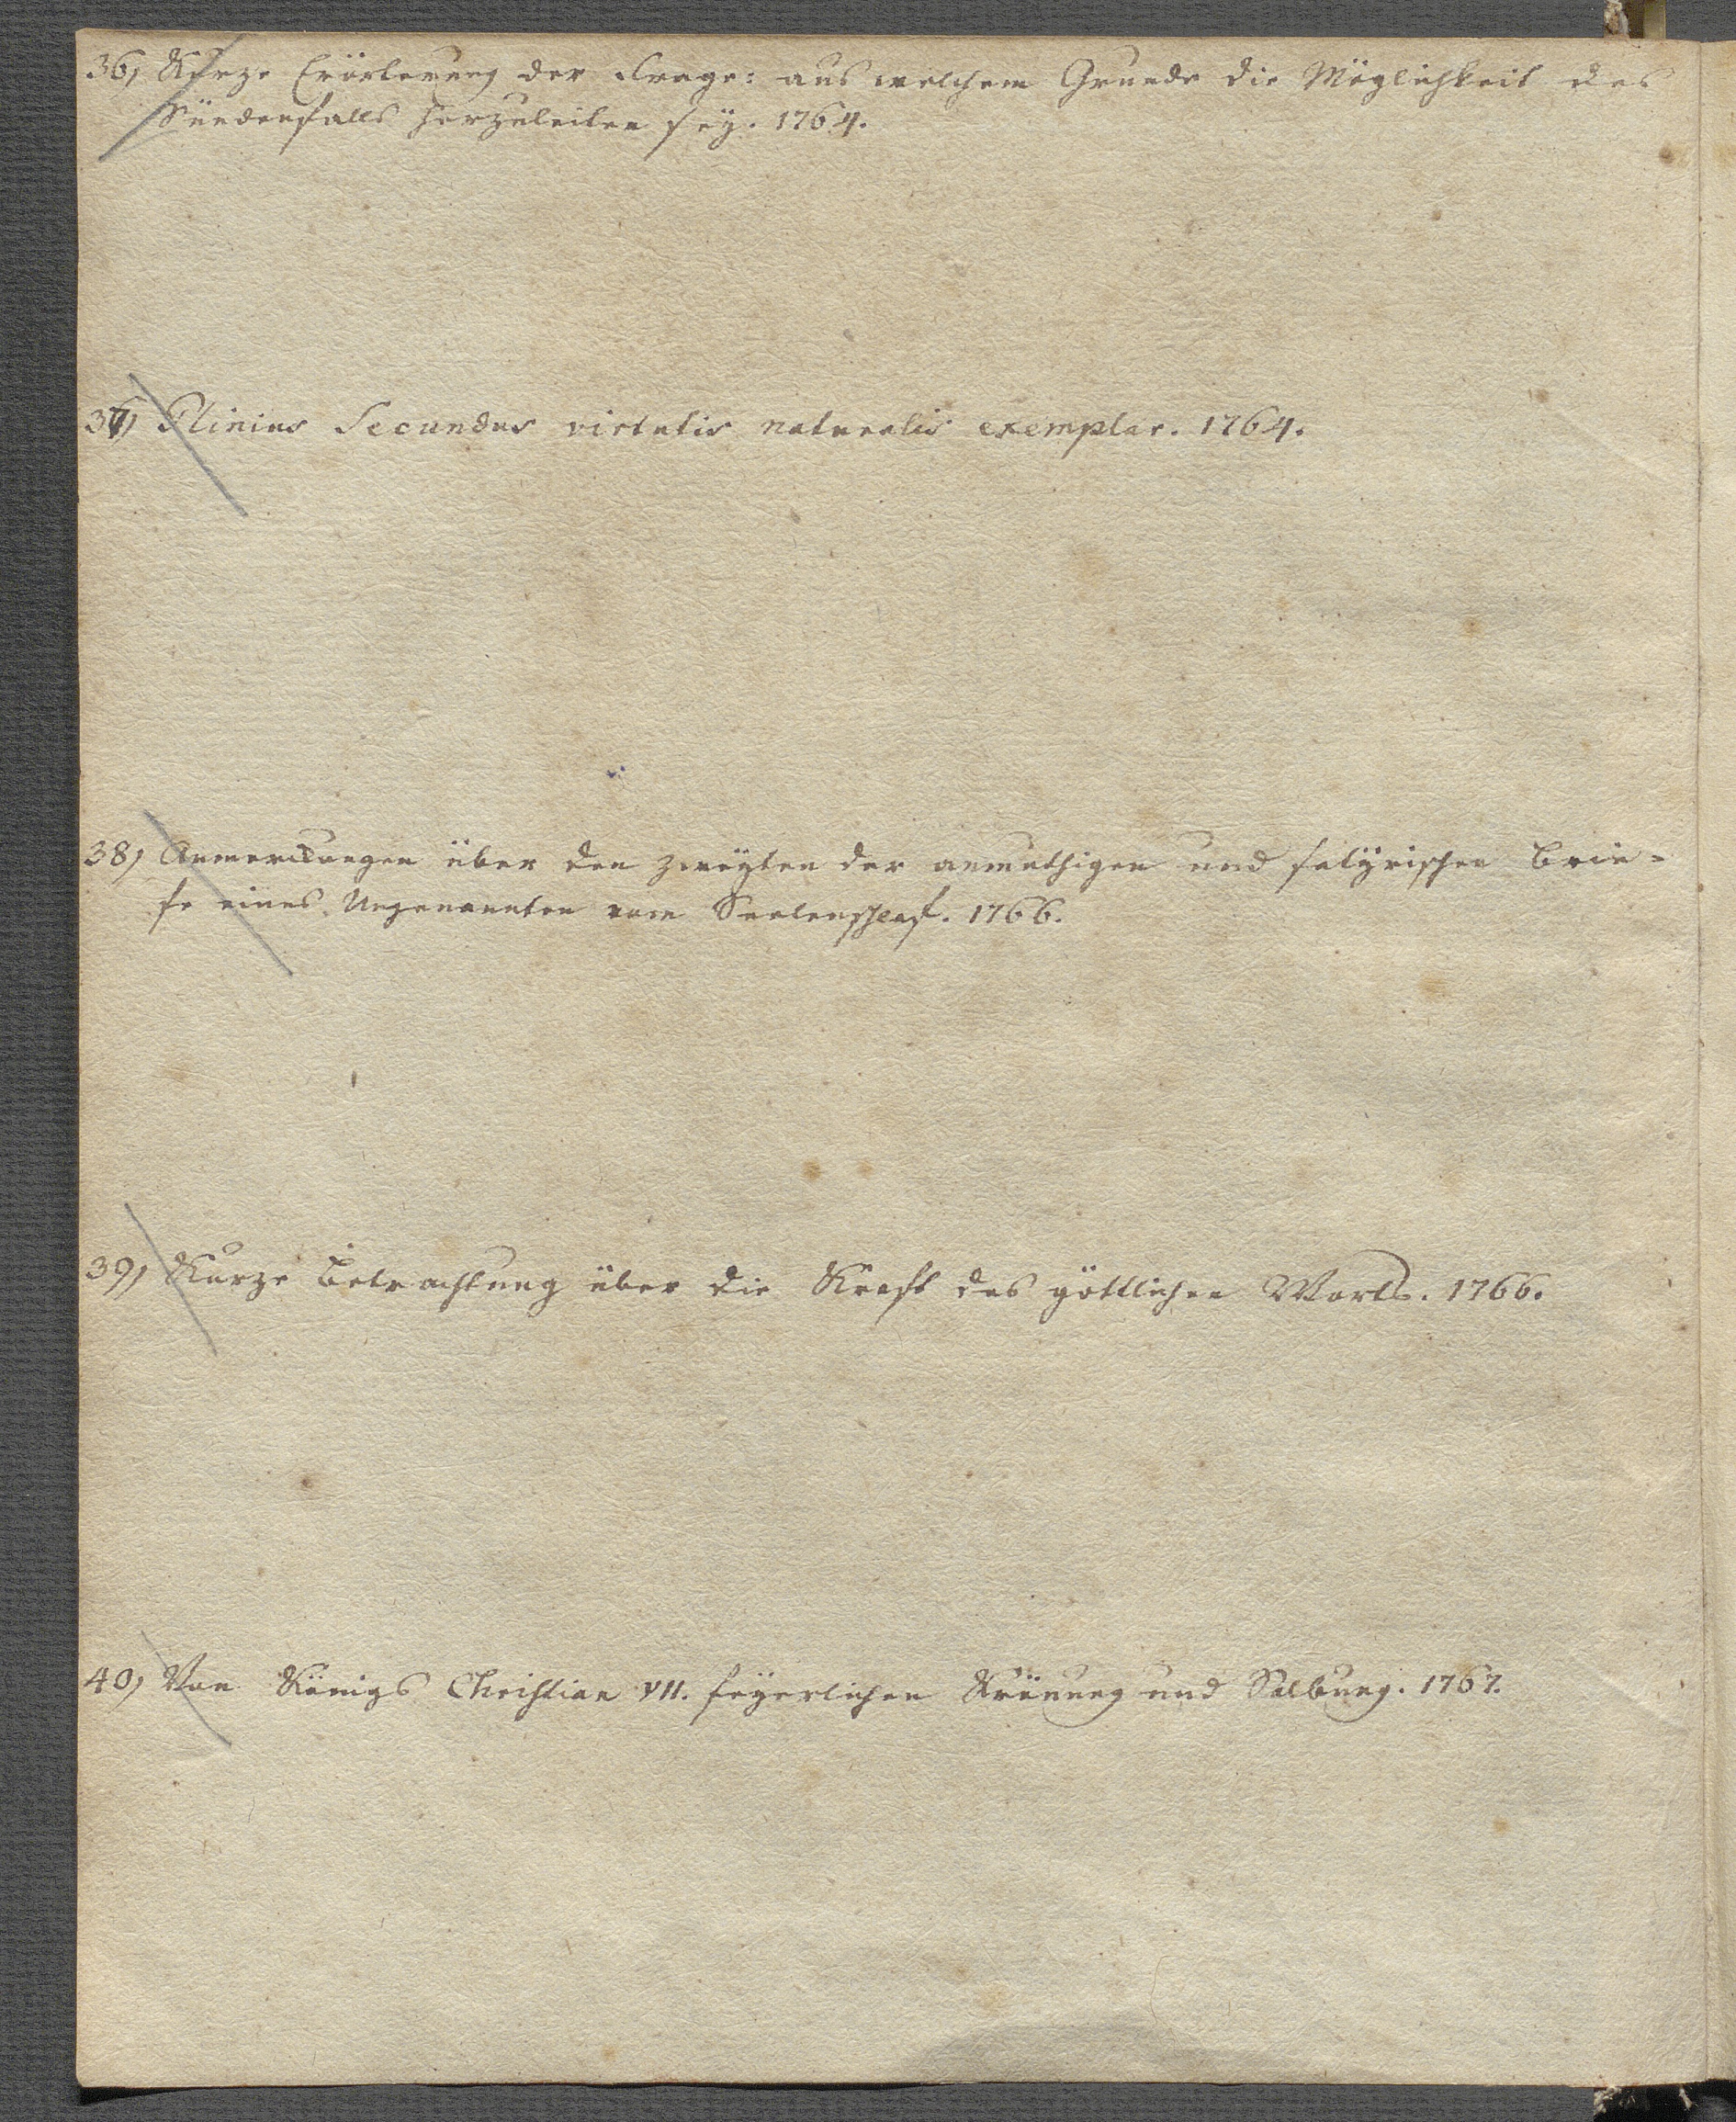 36) Kurze Erörterung der Frage: aus welchem Grunde die Möglichkeit des
Sündenfalls herzuleiten sey. 1764.
37) Plinius Secundus virtutis naturalis exemplar. 1764.
38) Anmerckungen über den zweyten der anmuthigen und satyrischen Brie-
fe eines Ungenannten vom Seelenschlaf. 1766.
39) Kurze Betrachtung über die Kraft des göttlichen Worts. 1766.
40) Von Königs Christian VII. feyerlichen Krönung und Salbung. 1767.